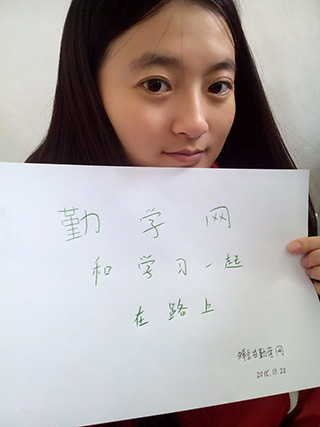 勤学网
和学习一起
在路上
在勤学网
2015.01.22